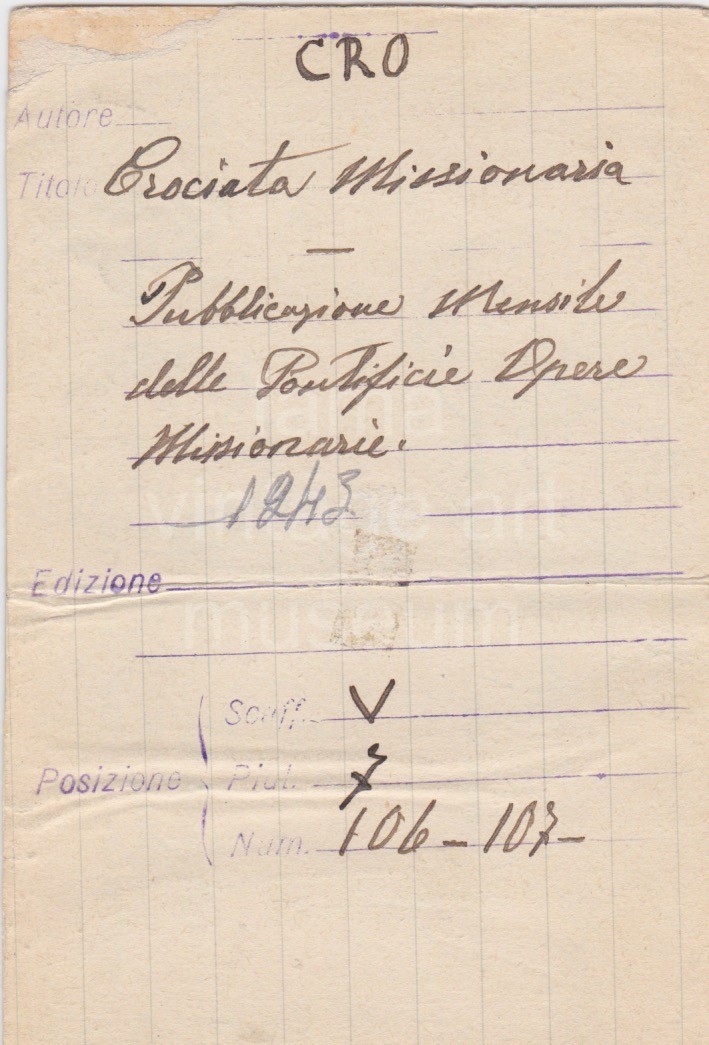 CRO
Autore
Titolo Crociata Missionaria
—
Pubblicazione Mensile
delle Pontificie Opere
Missionarie.
1943
Edizione
Posizione
Scaff. V
Piut. 7
Num. 106-107-
vintage art
museum